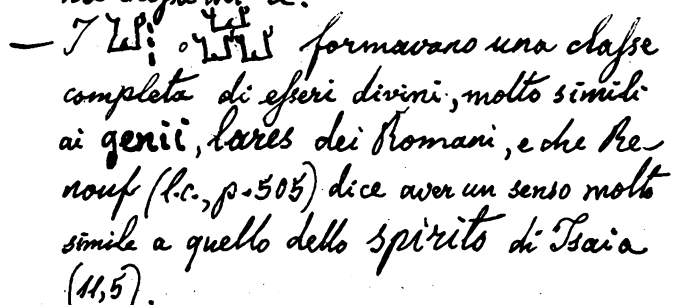 — I 𓂓 𓏥 o 𓂓𓂓𓂓 formavano una classe
completa di esseri divini, molto simili
ai genii, lares dei Romani, e che Re-
nouf (l.c., p. 505) dice aver un senso molto
simile a quello dello spirito di Isaia
(11,5).